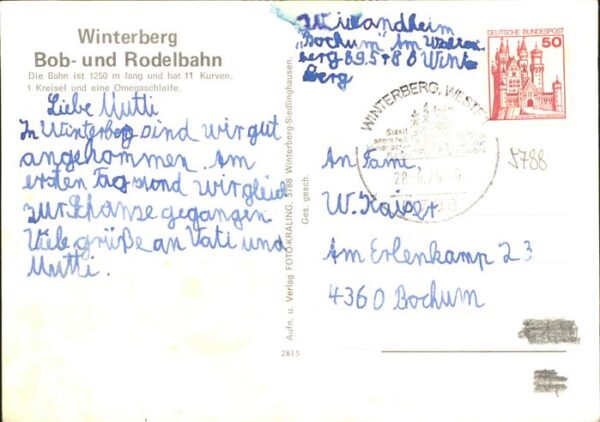 Winterberg
Bob- und Rodelbahn
Die Bahn ist 1250 m lang und hat 11 Kurven,
1 Kreisel und eine Omegaschleife.
Liebe Mutti
In Winterberg sind wir gut
angehommen. Am
ersten Tag sond wir gleich
zur Schanze gegangen
Viele grüße an Vati und
Mutti.
Aufn. u. Verlag FOTO-KRALING, 5788 Winterberg-Siedlinghausen,
Ges. gesch.
2815
heim
"Bochum" Am
berg 69 5788 Wint
berg
DEUTSCHE BUNDESPOST
50
WINTERBERG, WESTF
5788
An Fami.
W. Kaiser
Am Erlenkamp 23
4360 Bochum